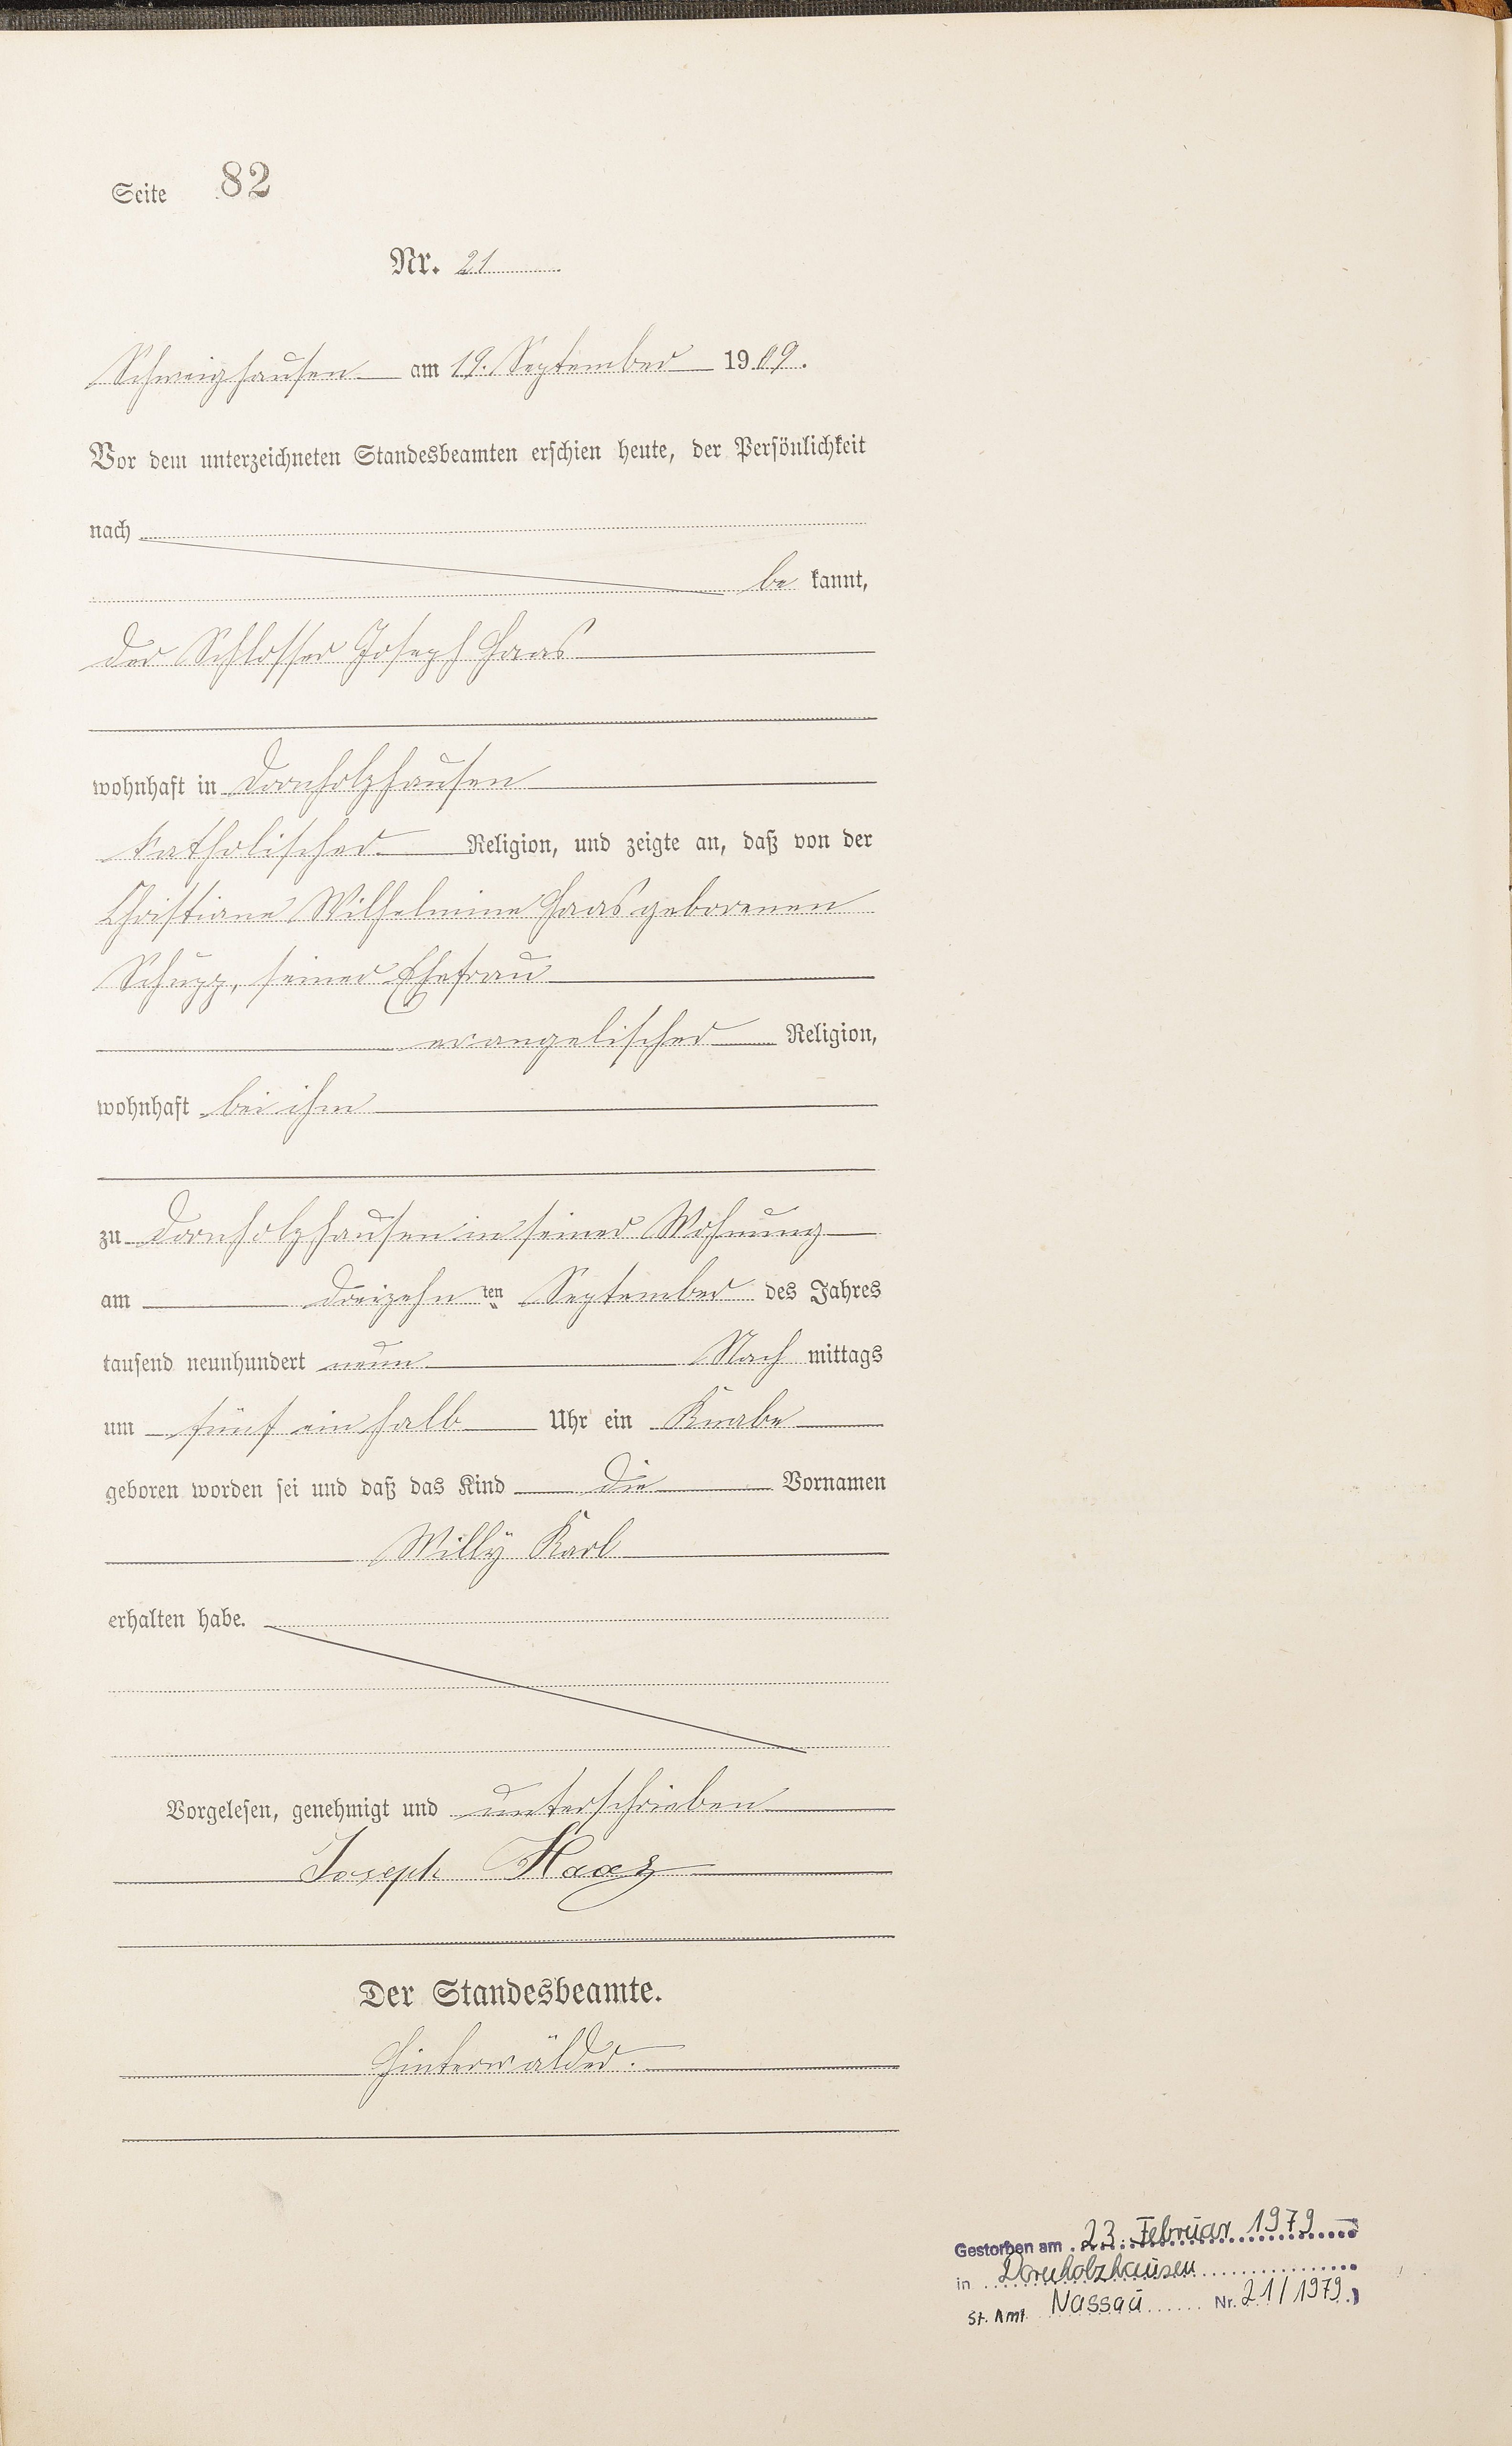 Seite 82
Nr. 21
Schweighausen am 19. September 1909.
Vor dem unterzeichneten Standesbeamten erschien heute, der Persönlichkeit
nach
be kannt,
der Schlosser Joseph Haas
wohnhaft in Dornholzhausen
katholischer Religion, und zeigte an, daß von der
Christiane Wilhelmine Haas geborenen
Schupp, seiner Ehefrau
evangelischer Religion,
wohnhaft bei ihm
zu Dornholzhausen in seiner Wohnung
am dreizehn ten September des Jahres
tausend neunhundert neun Nach mittags
um fünf einhalb Uhr ein Knabe
geboren worden sei und daß das Kind die Vornamen
Willy Karl
erhalten habe.
Vorgelesen, genehmigt und unterschrieben
Joseph Haas
Der Standesbeamte.
Hinterwälder.
Gestorben am 23. Februar 1979
in Dornholzhausen
St. Amt Nassau Nr. 21/1979)